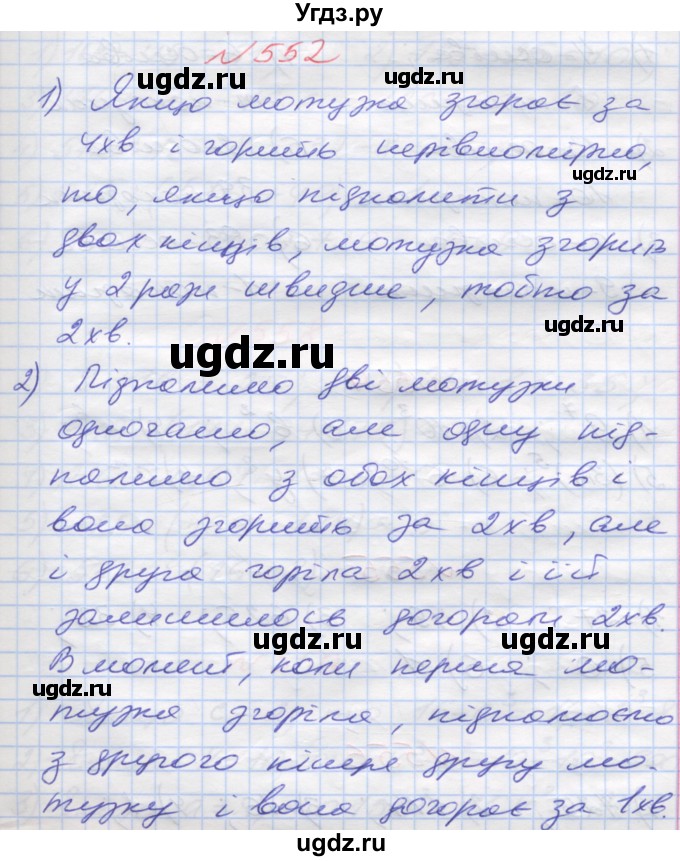 Угдз.ру
№552
1) Якщо мотузка згорає за
4хв і горить нерівномірно,
то, якщо підпалити з
двох кінців, мотузка згорить
у 2 рази швидше, тобто за
2хв.
2) Підпалимо дві мотузки
одночасно, але одну під-
палимо з обох кінців і
вона згорить за 2хв, але
і друга горіла 2хв і їй
залишилось догорати 2хв.
В момент, коли перша мо-
тузка згоріла, підпалюємо
з другого кінця другу мо-
тузку і вона догорає за 1хв.
ugdz.ru
ugdz.ru
ugdz.ru
ugdz.ru
ugdz.ru
ugdz.ru
ugdz.ru
ugdz.ru
ugdz.ru
ugdz.ru
ugdz.ru